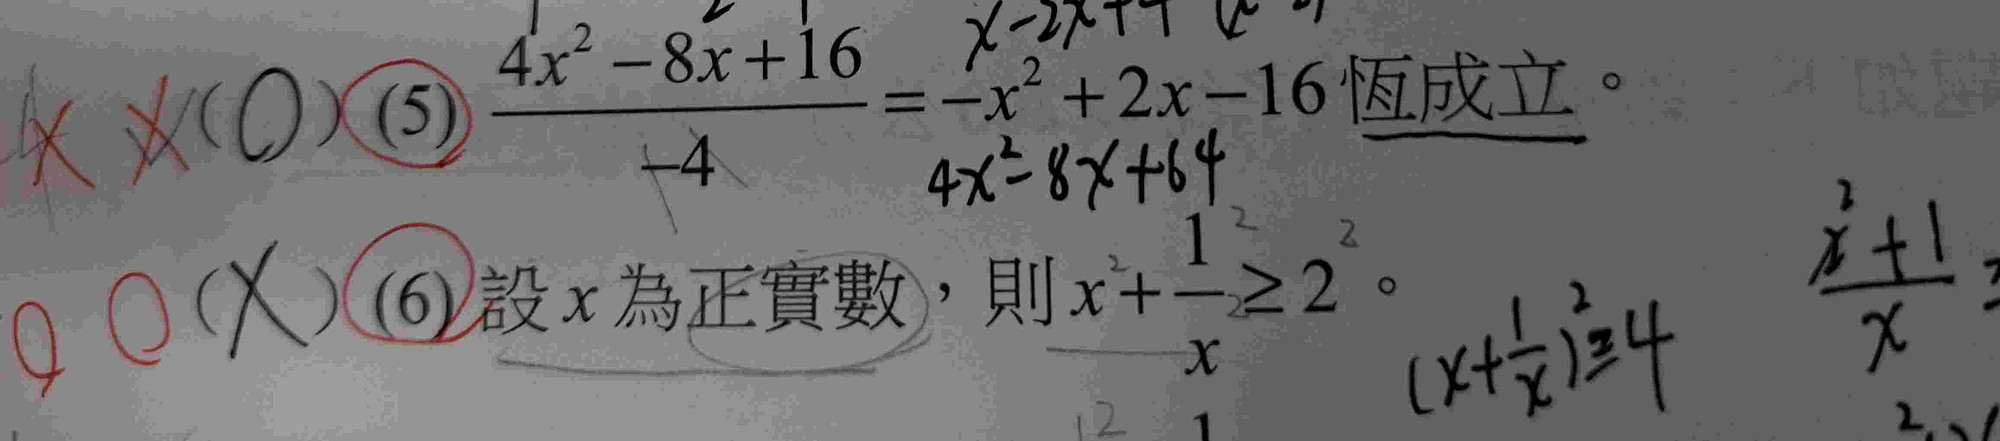 (O) (5) (4x² - 8x + 16)/(-4) = -x² + 2x - 16 恆成立。
4x² - 8x + 64
(X) (6) 設 x 為正實數，則 x + 1/x ≥ 2。
(x + 1/x)² ≥ 4
(x² + 1)/x